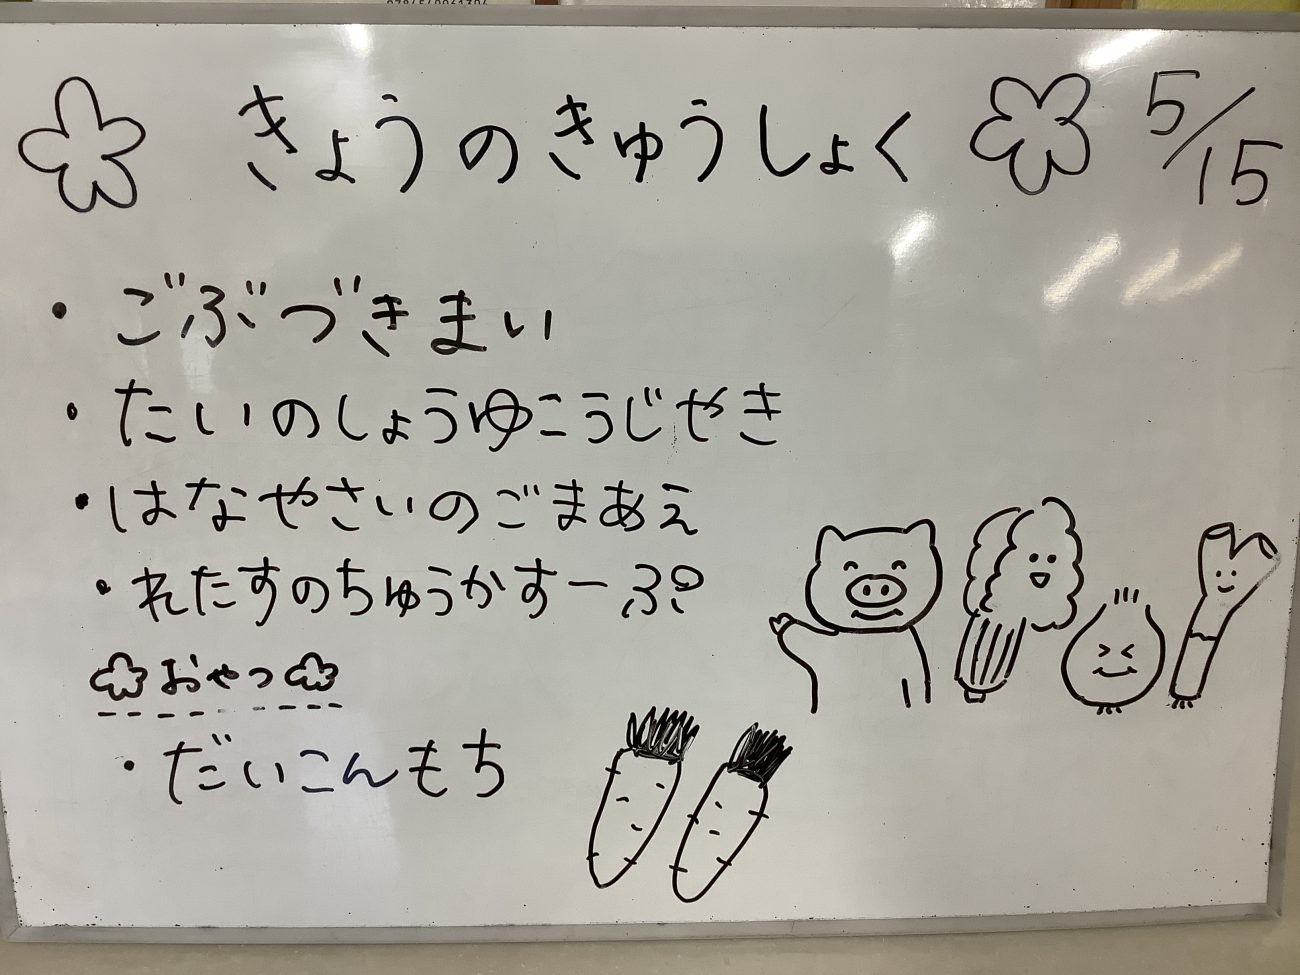 きょうのきゅうしょく 5/15
・ごぶづきまい
・たいのしょうゆこうじやき
・はなやさいのごまあえ
・れたすのちゅうかすーぷ
おやつ
・だいこんもち